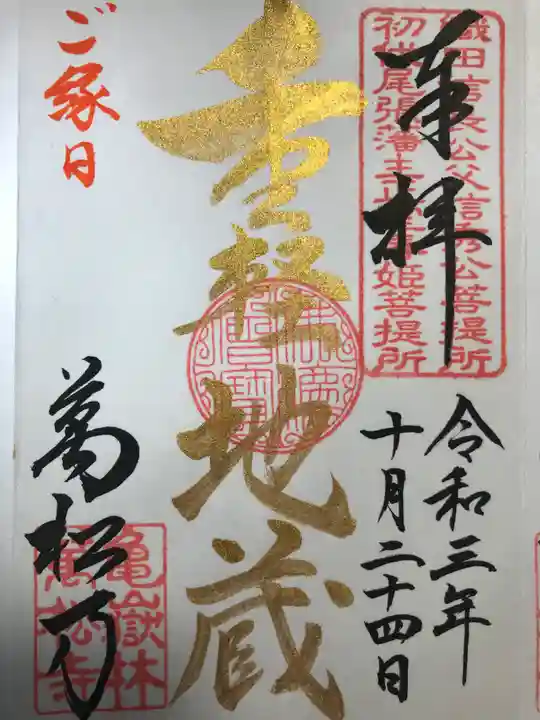 奉拝
織田信長公父信秀公菩提所
初代尾張藩主義直公正室春姫菩提所
令和三年
十月二十四日
重軽地蔵
佛法僧寶
ご縁日
萬松寺
亀嶽林
萬松寺